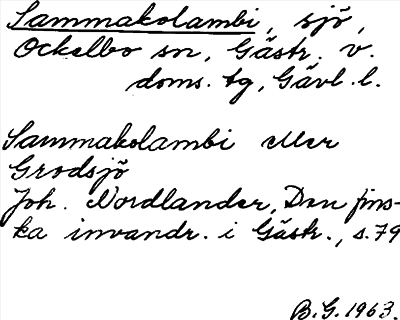 Sammakolambi, sjö,
Ockelbo sn, Gästr. v.
doms. tg, Gävl. l.
Sammakolambi eller
Grodsjö
Joh. Nordlander, Den fins-
ka invandr. i Gästr., s. 79
B.G. 1963.